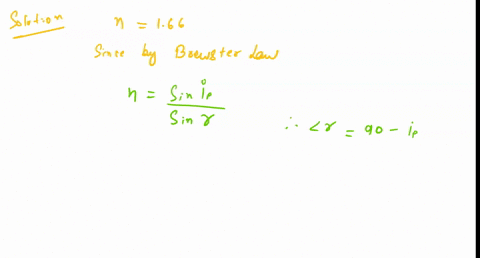 Solution n = 1.66
Since by Brewster Law
n = Sin ip / Sin r
∴ <r = 90 - ip